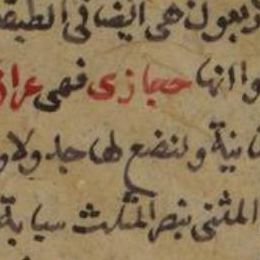 ربعون هى ايضا فى الطبقة
وا انها حجازى فهى عراق
ثانية ولنضع لها جدولا و
المثنى بنصر المثلث سبابة